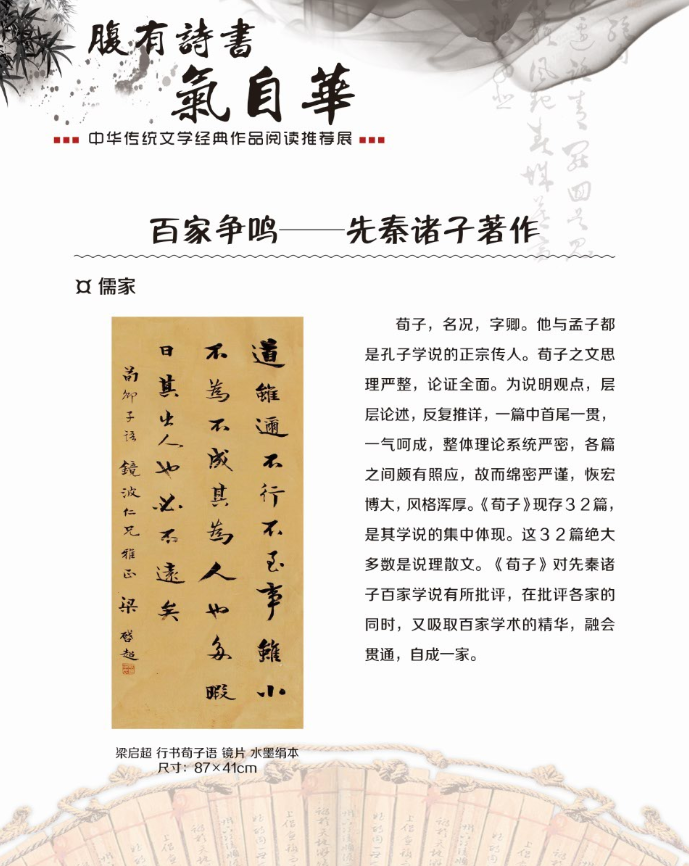 腹有詩書
氣自華
中华传统文学经典作品阅读推荐展
百家争鸣——先秦诸子著作
¤ 儒家
道雖邇不行不至事雖小
不為不成其為人也多暇
日其出人也必不遠矣
荀卿子語 鏡波仁兄雅正 梁啓超
梁启超 行书荀子语 镜片 水墨绢本
尺寸：87×41cm
荀子，名况，字卿。他与孟子都
是孔子学说的正宗传人。荀子之文思
理严整，论证全面。为说明观点，层
层论述，反复推详，一篇中首尾一贯，
一气呵成，整体理论系统严密，各篇
之间颇有照应，故而绵密严谨，恢宏
博大，风格浑厚。《荀子》现存32篇，
是其学说的集中体现。这32篇绝大
多数是说理散文。《荀子》对先秦诸
子百家学说有所批评，在批评各家的
同时，又吸取百家学术的精华，融会
贯通，自成一家。